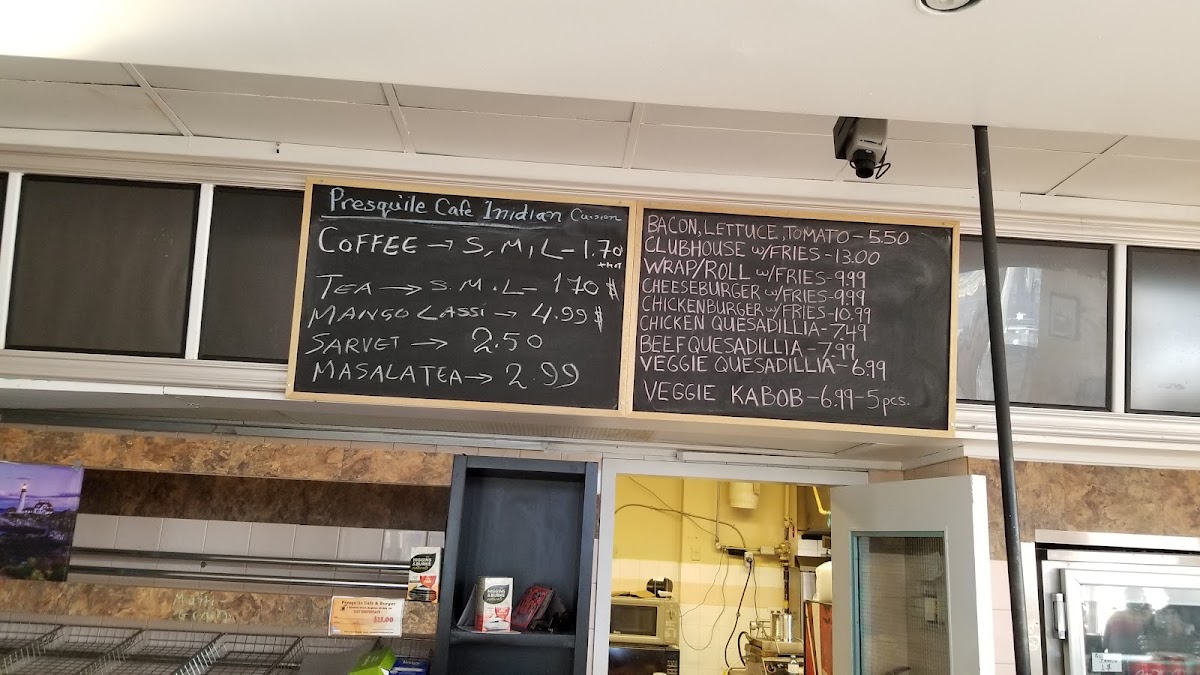 Presquile Cafe Inidian Cusion
COFFEE → S, M, L - 1.70
TEA → S.M.L - 170 $
MANGO LASSI → 4.99 $
SARVET → 2.50
MASALA TEA → 2.99
BACON, LETTUCE, TOMATO - 5.50
CLUBHOUSE w/FRIES - 13.00
WRAP/ROLL w/FRIES - 9.99
CHEESEBURGER w/FRIES - 9.99
CHICKENBURGER w/FRIES - 10.99
CHICKEN QUESADILLIA - 7.49
BEEF QUESADILLIA - 7.99
VEGGIE QUESADILLIA - 6.99
VEGGIE KABOB - 6.99 - 5 pcs.
Presquile Cafe & Burger
$25.00
HIGGINS
&BURKE